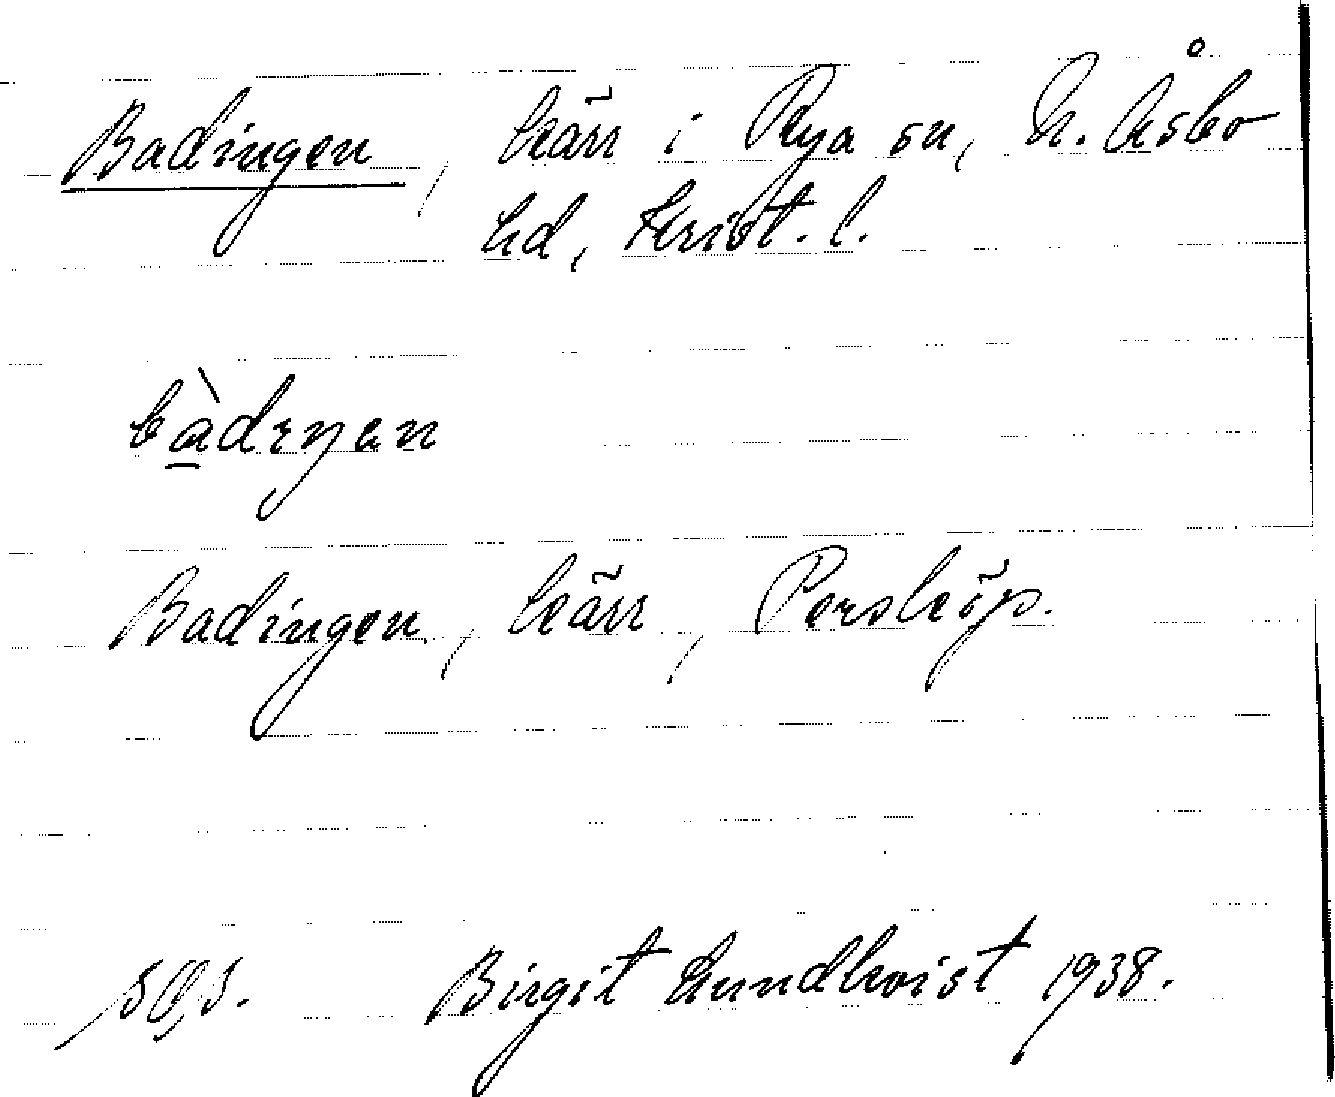 Badingen, kärr i Rya sn, N. Åsbo
hd, Krist. l.
bàdıŋan
Badingen, kärr, Persköp.
Birgit Lundkvist 1938.